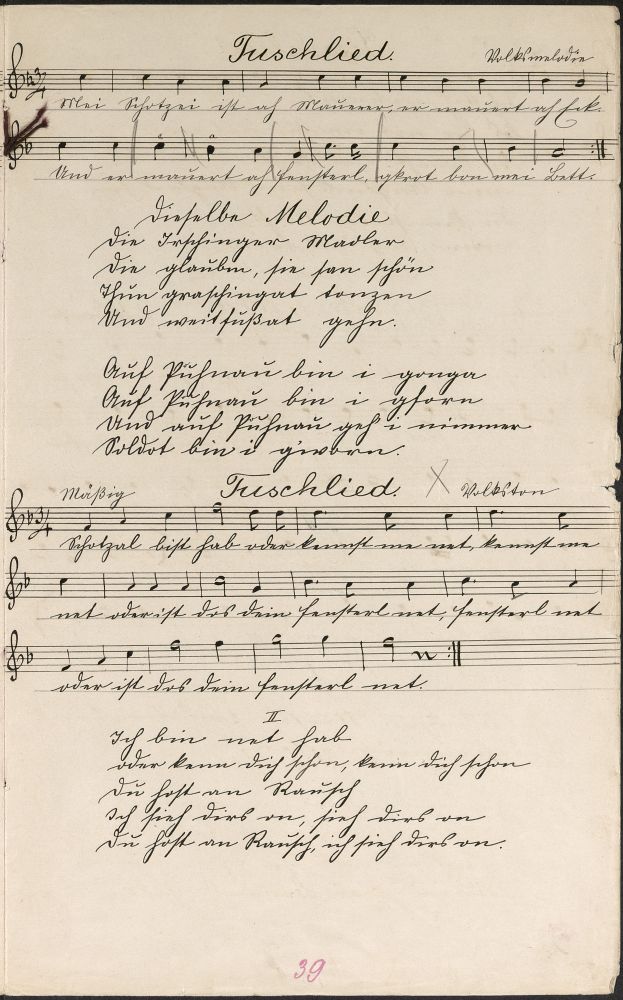 Tuschlied. Volksmelodie
Mei Schotzei ist ah Mauerer, er mauert ah Eck.
Und er mauert ah Fensterl, gkrot bon mei Bett.
Dieselbe Melodie
Die Irschinger Madler
Die glauben, sie san schön
Thun graschingat tonzen
Und weitfußat gehn.
Auf Puhnau bin i gonga
Auf Puhnau bin i gforn
Und auf Puhnau geh' i nimmer
Soldot bin i g'worn.
Mäßig Tuschlied. X Volkston
Schotzal bist hab oder kennst me net, kennst me
net oder ist dos dein Fensterl net, Fensterl net
oder ist dos dein Fensterl net.
II
Ich bin net hab
oder kenn dich schon, kenn dich schon
Du host an Rausch
Ich sieh dirs on, sieh dirs on
Du host an Rausch, ich sieh dirs on.
39